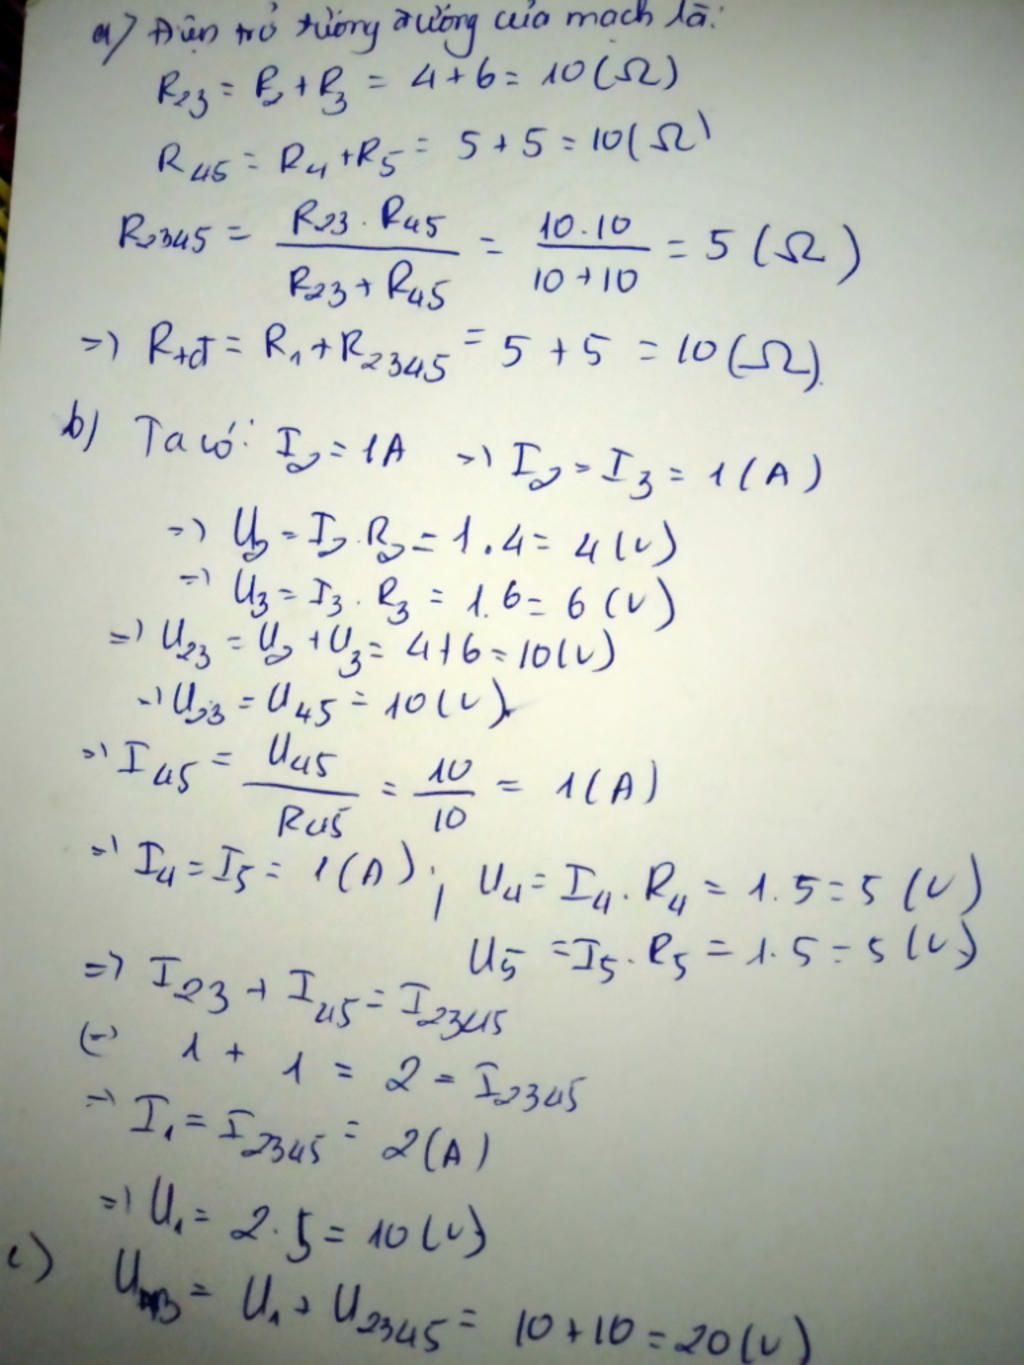 a) Điện trở tương đương của mạch là:
R23 = R2 + R3 = 4 + 6 = 10 (Ω)
R45 = R4 + R5 = 5 + 5 = 10 (Ω)
R2345 = R23 . R45 / R23 + R45 = 10 . 10 / 10 + 10 = 5 (Ω)
=> Rtđ = R1 + R2345 = 5 + 5 = 10 (Ω).
b) Ta có: I2 = 1A => I2 = I3 = 1 (A)
=> U2 = I2 . R2 = 1 . 4 = 4 (V)
=> U3 = I3 . R3 = 1 . 6 = 6 (V)
=> U23 = U2 + U3 = 4 + 6 = 10 (V)
=> U23 = U45 = 10 (V).
=> I45 = U45 / R45 = 10 / 10 = 1 (A)
=> I4 = I5 = 1 (A) ; U4 = I4 . R4 = 1 . 5 = 5 (V)
U5 = I5 . R5 = 1 . 5 = 5 (V)
=> I23 + I45 = I2345
(=> 1 + 1 = 2 = I2345
=> I1 = I2345 = 2 (A)
=> U1 = 2 . 5 = 10 (V)
c) UAB = U1 + U2345 = 10 + 10 = 20 (V)